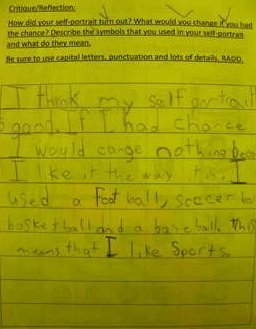 Critique/Reflection:
How did your self-portrait turn out? What would you change if you had
the chance? Describe the symbols that you used in your self-portrait
and what do they mean.
Be sure to use capital letters, punctuation and lots of details. RADD.
I think my self portrait
is good. If I had chance
I would cange nothing
I like it the way it is. I
used a foot ball, soccer bal
basketball and a base ball. This
means that I like Sports.